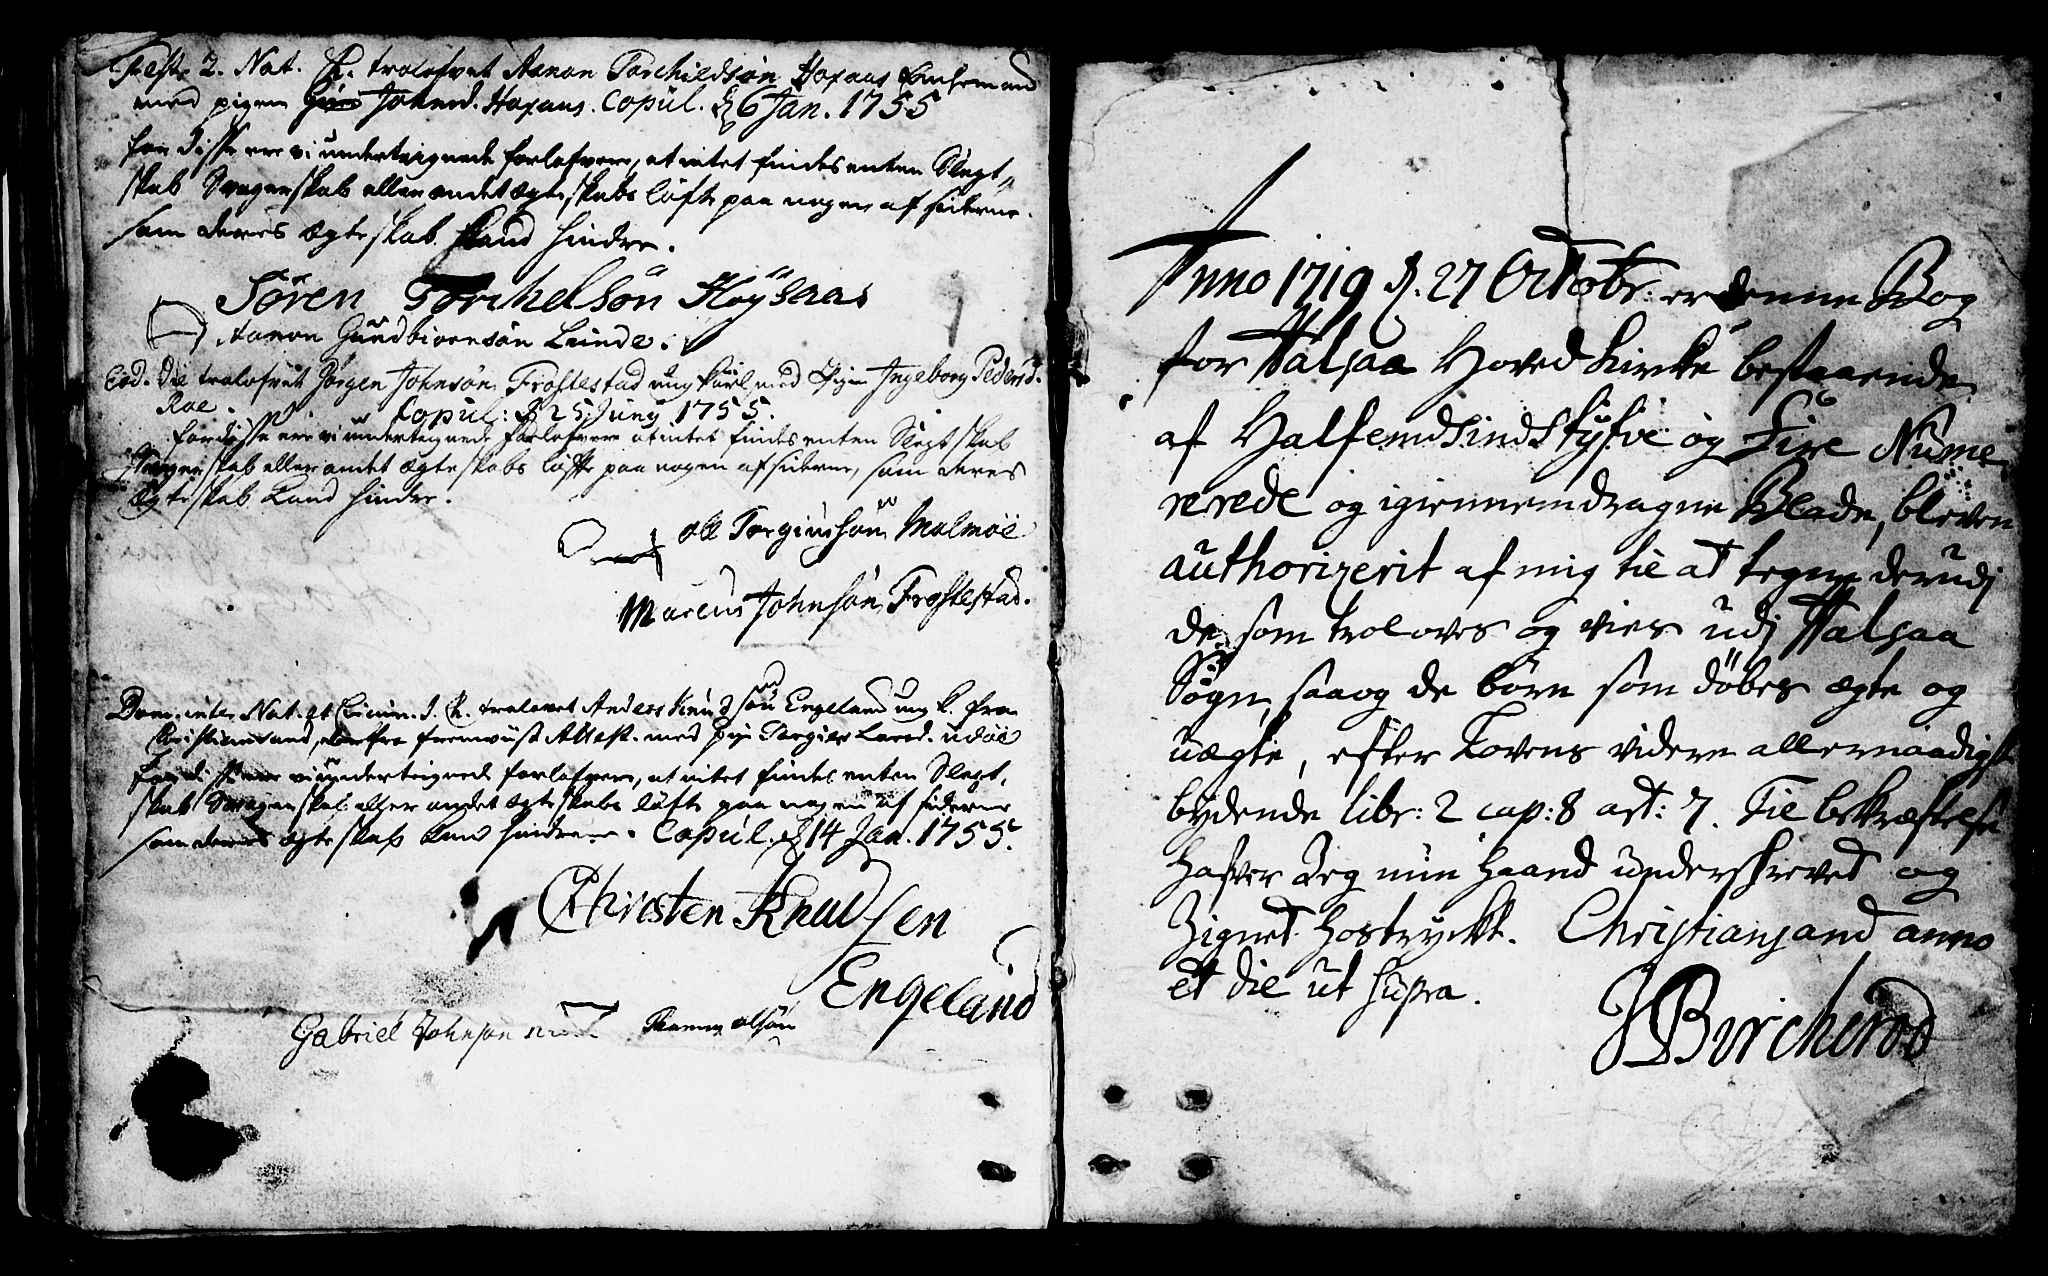 Festo 2. Nat. C. trolofvet Aanon Torchieldsøn Høyaas Enchemand
med pigen Johnsd. Høyaas. Copul. d. 6 Jan. 1755
for disse ere vi undertegnede forlofvere, at intet findes enten Slegt„
skab Svogerskab eller andet ægteskabs løfte paa nogen af siderne
som deres ægteskab kand hindre.
Søren Torchelsøn Høysaas
Aanon Gundbiørnsøn Lunde.
Eod. Die trolofvet Jørgen Johnsøn Frostestad ung karl med Pigen Ingeborg Pedersd.
Roe. Copul: d. 25 Juny 1755.
for disse ere vi undertegnede forlofvere at intet findes enten Slegtskab
Svogerskab eller andet ægteskabs løfte paa nogen af siderne, som deres
Ægteskab kand hindre.
Ole Torgiussøn Malmøe
Marcus Johnsøn Frostestad.
Dom. inter Nat. et Circum. J. C. trolovet Anders Knudsøn Engeland ung k. fra
Christiansand, fremviist Attest. med pige Torgier Larsd. Udøe
for disse ere vi undertegnede forlofvere, at intet findes enten Slegt,
skab Svogerskab eller andet ægteskabs løfte paa nogen af siderne
som deres ægteskab kand hindre. Copul. d. 14 Jan. 1755.
Christen Knudsen
Engeland
Gabriel Johnson olsøn
Anno 1719 d. 27 Octobr: er denne Bog
for Halsaa Hoved Kircke bestaaende
af Halfemdsindstyfve og Fire Nume
rerede og igiennemdragne Blade, bleven
authorizerit af mig til at tegne derudj
de som troloves og vies udj Halsaa
Sogn, saa og de børn som døbes ægte og
uægte, efter Lovens videre allernaadigst
bydende libr: 2 cap: 8 art: 7. Til bekræftelse
hafver Jeg min haand underskrevet og
Zignet hostryckt. Christiansand anno
et die ut supra.
J Borcherod